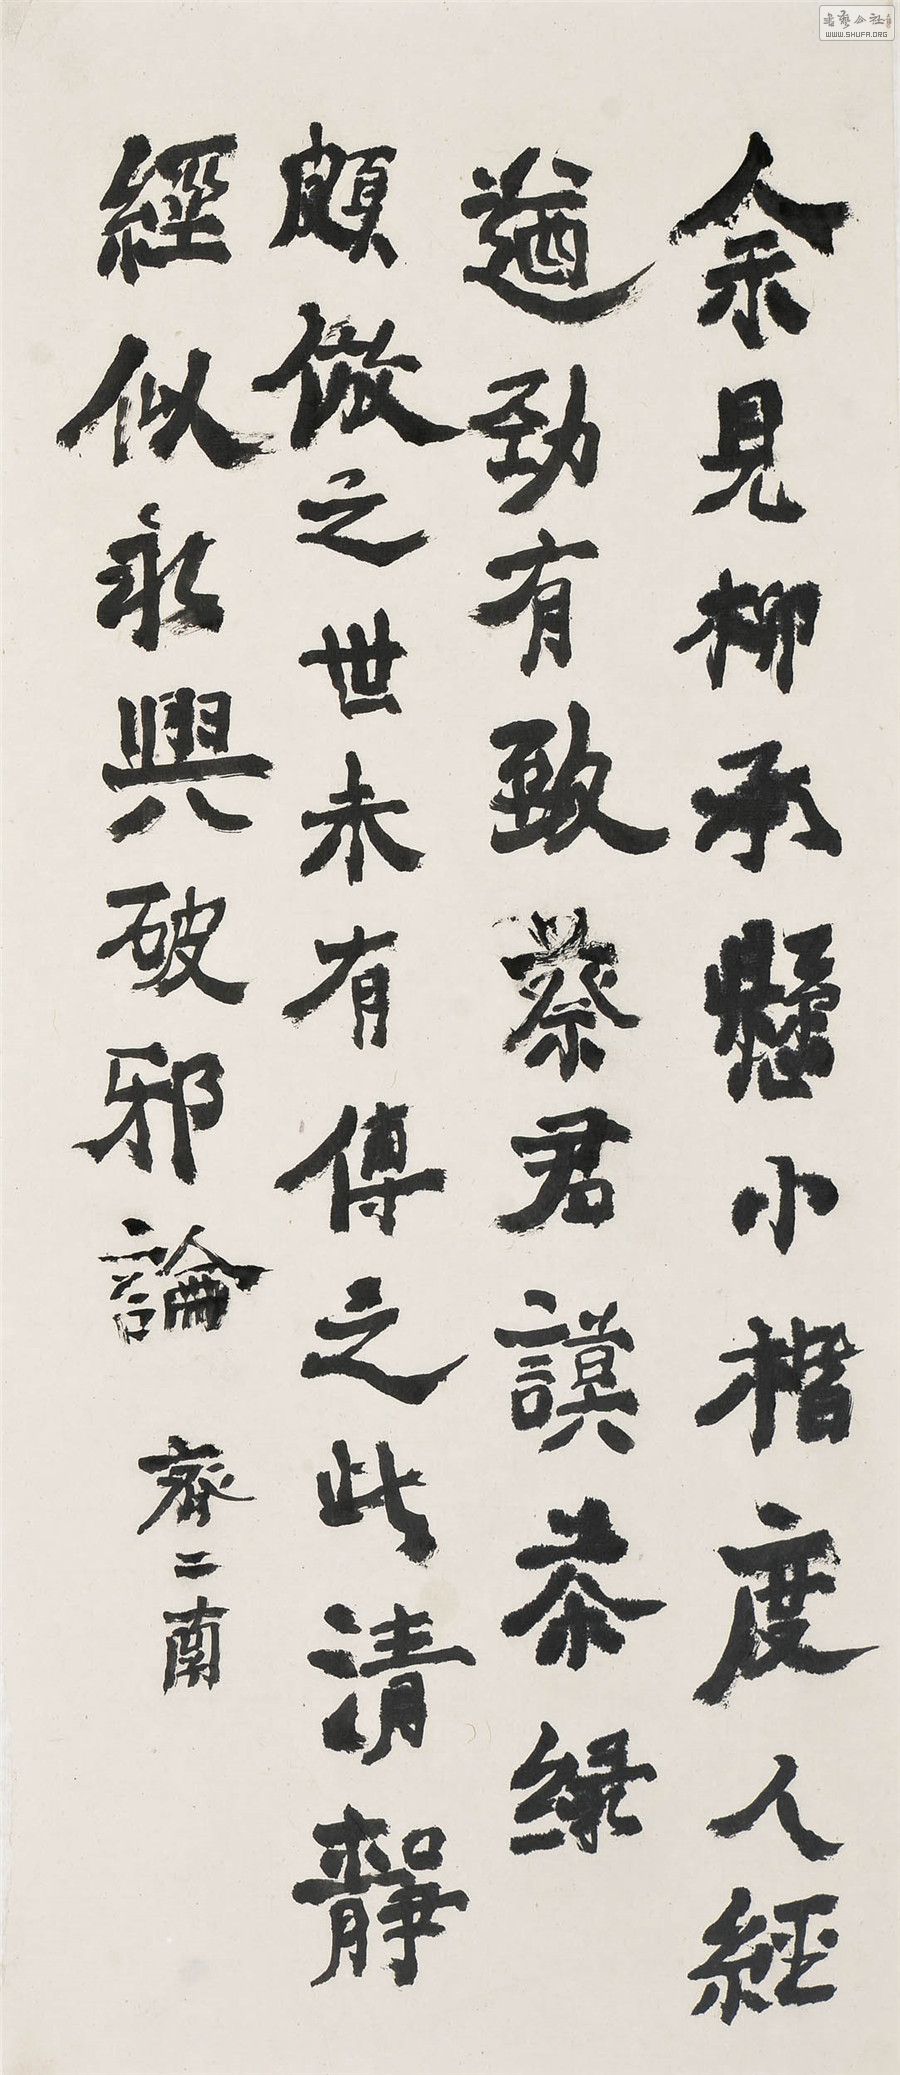 余見柳承懸小楷度人經
遒勁有致蔡君謨茶錄
頗倣之世未有傳之此清靜
經似永興破邪論
齊二南
WWW.SHUFA.ORG